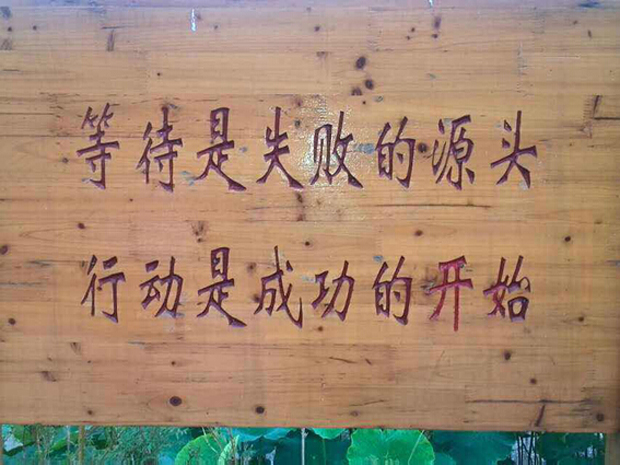 等待是失败的源头
行动是成功的开始